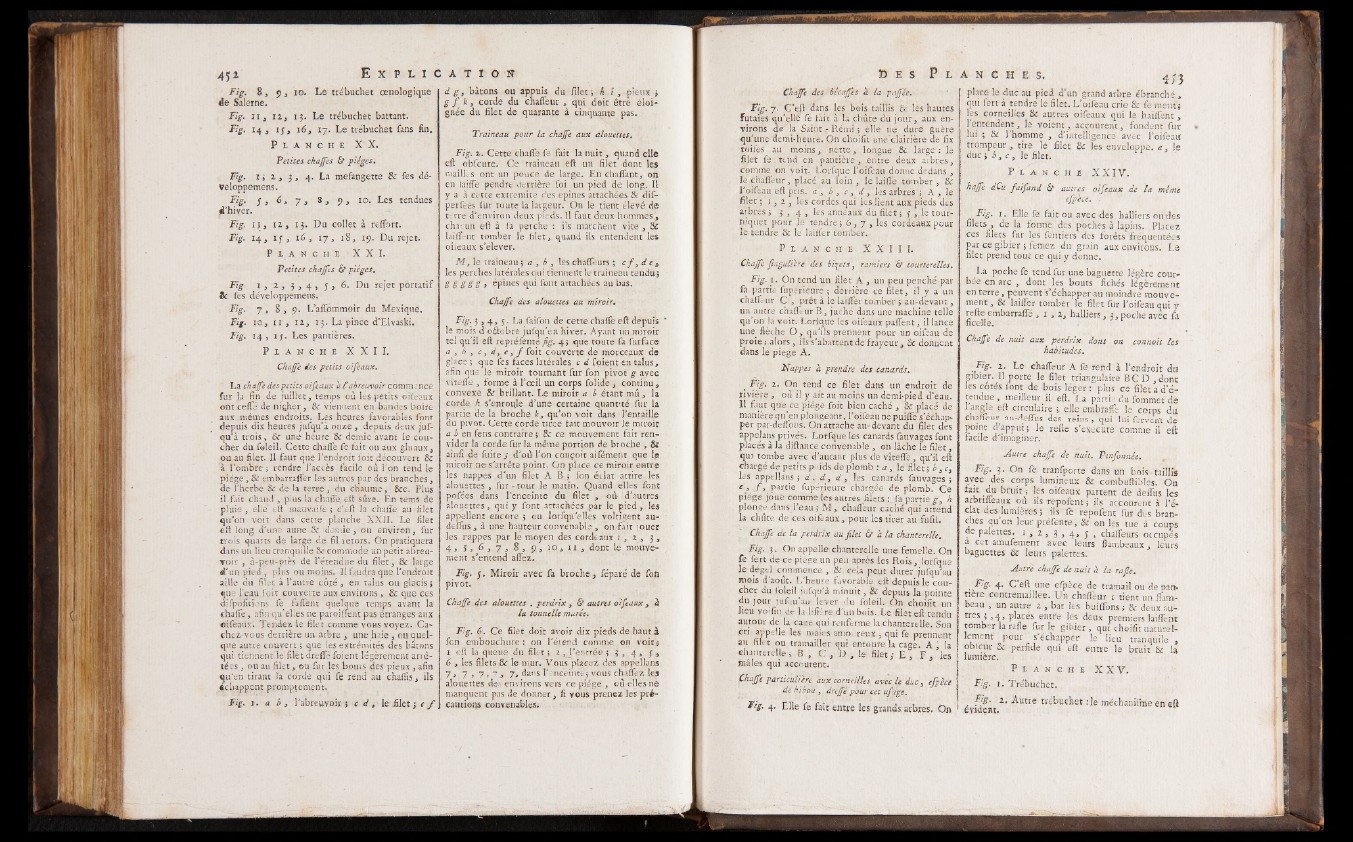 452 EXPLICATION
Fig. 8, 9, 10. Le trébuchet œnologique
de Salerne.
Fig. 11, 12, 13. Le trébuchet battant.
Fig. 14, 15, 16, 17. Le trébuchet sans fin.
PLANCHE XX.
Petites chaſſes & piéges.
Fig. 1, 2, 3, 4. La meſangette & ſes dé-
veloppemens.
Fig. 5, 6, 7, 8, 9, 10. Les tendues
d'hiver.
Fig. 11, 12, 13. Du collet à reſſort.
Fig. 14, 15, 16, 17, 18, 19. Du rejet.
PLANCHE XXI.
Petites chaſſes & piéges.
Fig 1, 2, 3, 4, 5, 6. Du rejet portatif
& ſes développemens.
Fig. 7, 8, 9. L'aſſommoir du Mexique.
Fig. 10, 11, 12, 13. La pince d'Elvaski.
Fig. 14, 15. Les pantières.
PLANCHE XXII.
Chaſſe des petits oiſeaux.
La chaſſe des petits oiſeaux à l'abreuvoir commence
ſur la fin de juillet, temps où les petits oiſeaux
ont ceſſé de nigher, & viennent en bandes boire
aux mêmes endroits. Les heures favorables ſont
depuis dix heures juſqu'à onze, depuis deux juſ-
qu'à trois, & une heure & demie avant le cou-
cher du ſoleil. Cette chaſſe ſe fait ou aux gluaux,
ou au filet. Il faut que l'endroit ſoit découvert &
à l'ombre; rendre l'accès facile où l'on tend le
piége, & embarraſſer les autres par des branches,
de l'herbe & de la terre, du chaume, &c. Plus
il fait chaud, plus la chaſſe eſt sûre. En tems de
pluie, elle eſt mauvaiſe; c'eſt la chaſſe au filet
qu'on voit dans cette planche XXII. Le filet
eſt long d'une aune & demie, ou environ, ſur
trois quarts de large de fil retors. On pratiquera
dans un lieu tranquille & commode un petit abreu-
voir, à-peu-près de l'étendue du filet, & large
d'un pied, plus ou moins. Il faudra que l'endroit
aille du filet à l'autre côté, en talus ou glacis;
que l'eau ſoit couverte aux environs, & que ces
diſpoſitions ſe faſſent quelque temps avant la
chaſſe, afin qu'elles ne paroiſſent pas étranges aux
oiſeaux. Tendez le filet comme vous voyez. Ca-
chez vous derrière un arbre, une haie, ou quel-
que autre couvert; que les extrémités des bâtons
qui tiennent le filet dreſſé ſoient légèrement arrê-
tées, ou au filet, ou ſur les bouts des pieux, afin
qu'en tirant la corde qui ſe rend au chaſſis, ils
échappent promptement.
Fig. 1. a b, l'abreuvoir; c d, le filet; e f
d g, bâtons ou appuis du filet; h i, pieux;
g f k, corde du chaſſeur, qui doit être éloi-
gnée du filet de quarante à cinquante pas.
Traineau pour la chaſſe aux alouettes.
Fig. 2. Cette chaſſe ſe fait la nuit, quand elle
eſt obſcure. Ce traineau eſt un filet dont les
mailles ont un pouce de large. En chaſſant, on
en laiſſe pendre derrière ſoi un pied de long. Il
y a à cette extrémité des epines attachées & diſ-
perſées ſur toute la largeur. On le tient élevé de
terre d'environ deux pieds. Il faut deux hommes,
chacun eſt à ſa perche : ils marchent vîte, &
laiſſent tomber le filet, quand ils entendent les
oiſeaux s'élever.
M, le traineau; a, b, les chaſſeurs; c f, d e,
les perches latérales qui tiennent le traineau tendu;
g g g g g, épines qui ſont attachées au bas.
Chaſſe des alouettes au miroir.
Fig. 3, 4, 5. La ſaiſon de cette chaſſe eſt depuis
le mois d'octobre juſqu'en hiver. Ayant un miroir
tel qu'il eſt repréſenté fig. 4; que toute ſa ſurface
a, b, c, d, e, f ſoit couverte de morceaux de
glace; que ſes faces latérales c d ſoient en talus,
afin que le miroir tournant ſur ſon pivot g avec
viteſſe, forme à l'œil un corps ſolide, continu,
convexe & brillant. Le miroir a b étant mû, la
corde h s'enroule d'une certaine quantité ſur la
partie de la broche k, qu'on voit dans l'entaille
du pivot. Cette corde tirée fait mouvoir le miroir
a b en ſens contraire; & ce mouvement fait ren-
vider la corde ſur la même portion de broche, &
ainſi de ſuite; d'où l'on conçoit aiſément que le
miroir ne s'arrête point. On place ce miroir entre
les nappes d'un filet A B; ſon éclat attire les
alouettes, ſur-tout le matin. Quand elles ſont
poſées dans l'enceinte du filet, où d'autres
alouettes, qui y ſont attachées par le pied, les
appellent encore; ou lorſqu'elles voltigent au-
deſſus, à une hauteur convenable, on fait jouer
les nappes par le moyen des cordeaux 1, 2, 3,
4, 5, 6, 7, 8, 9, 10, 11, dont le mouve-
ment s'entend aſſez.
Fig. 5. Miroir avec ſa broche, ſéparé de ſon
pivot.
Chaſſe des alouettes, perdrix, & autres oiſeaux, à
la tonnelle murée.
Fig. 6. Ce filet doit avoir dix pieds de haut à
ſon embouchure : on l'étend comme on voit;
1 eſt la queue du filet; 2, l'entrée; 3, 4, 5,
6, les filets & le mur. Vous placez des appellans
7, 7, 7, 7, 7, dans l'enceinte; vous chaſſez les
alouettes des environs vers ce piége, où elles ne
manquent pas de donner, ſi vous prenez les pré-
cautions convenables.
DES PLANCHES. 453
Chaſſe des bécaſſes à la paſſée.
Fig. 7. C'eſt dans les bois taillis & les hautes
futaies qu'elle ſe fait à la chûte du jour, aux en-
virons de la Saint-Rémi; elle ne dure guère
qu'une demi-heure. On choiſit une clairière de ſix
toiſes au moins, nette, longue & large : le
filet ſe tend en pantière, entre deux arbres,
comme on voit. Lorſque l'oiſeau donne dedans,
le chaſſeur, placé au loin, le laiſſe tomber, &
l'oiſeau eſt pris. a, b, c, d, les arbres; A, le
filet; 1, 2, les cordes qui les lient aux pieds des
arbres; 3, 4, les anneaux du filet; 5, le tour-
niquet pour le tendre; 6, 7, les cordeaux pour
le tendre & le laiſſer tomber.
PLANCHE XXIII.
Chaſſe ſingulière des biſets, ramiers & tourterelles.
Fig. 1. On tend un filet A, un peu penché par
ſa partie ſupérieure; derrière ce filet, il y a un
chaſſeur C, prêt à le laiſſer tomber; au-devant,
un autre chaſſeur B, juché dans une machine telle
qu'on la voit. Lorſque les oiſeaux paſſent, il lance
une flèche O, qu'ils prennent pour un oiſeau de
proie; alors, ils s'abattent de frayeur, & donnent
dans le piége A.
Nappes à prendre des canards.
Fig. 2. On tend ce filet dans un endroit de
rivière, où il y ait au moins un demi-pied d'eau.
Il faut que ce piége ſoit bien caché, & placé de
manière qu'en plongeant, l'oiſeau ne puiſſe s'échap-
per par-deſſous. On attache au-devant du filet des
appelans privés. Lorſque les canards ſauvages ſont
placés à la diſtance convenable, on lâche le filet,
qui tombe avec d'autant plus de viteſſe, qu'il eſt
chargé de petits poids de plomb : a, le filet; b, c,
les appellans; d, d, d, les canards ſauvages;
e, f, partie ſupérieure chargée de plomb. Ce
piége joue comme les autres filets : ſa partie g, h
plonge dans l'eau; M, chaſſeur caché qui attend
la chûte de ces oiſeaux, pour les tirer au fuſil.
Chaſſe de la perdrix au filet & à la chanterelle.
Fig. 3. On appelle chanterelle une femelle. On
ſe ſert de ce piége un peu après les Rois, lorſque
le dégel commence, & cela peut durer juſqu'au
mois d'août. L'heure favorable eſt depuis le cou-
cher du ſoleil juſqu'à minuit, & depuis la pointe
du jour juſqu'au lever du ſoleil. On choiſit un
lieu voiſin de la liſière d'un bois. Le filet eſt tendu
autour de la cage qui renferme la chanterelle. Son
cri appelle les mâles amoureux, qui ſe prennent
au filet ou tramailler qui entoure la cage. A, la
chanterelle; B, C, D, le filet; E, F, les
mâles qui accourent.
Chaſſe particulière aux corneilles avec le duc, eſpèce
de hibou, dreſſé pour cet uſage.
Fig. 4. Elle ſe fait entre les grands arbres. On
place le duc au pied d'un grand arbre ébranché,
qui ſert à tendre le filet. L'oiſeau crie & ſe ment;
les corneilles & autres oiſeaux qui le haïſſent,
l'entendent, le voient, accourent, fondent ſur
lui; & l'homme, d'intelligence avec l'oiſeau
trompeur, tire le filet & les enveloppe. a, le
duc; b, c, le filet.
PLANCHE XXIV.
haſſe du faiſand & autres oiſeaux de la même
eſpèce.
Fig. 1. Elle ſe fait ou avec des halliers ou des
filets, de la forme des poches à lapins. Placez
ces filets ſur les ſentiers des forêts fréquentées
par ce gibier; ſemez du grain aux environs. Le
filet prend tout ce qui y donne.
La poche ſe tend ſur une baguette légère cour-
bée en arc, dont les bouts fichés légèrement
en terre, peuvent s'échapper au moindre mouve-
ment, & laiſſer tomber le filet ſur l'oiſeau qui y
reſte embarraſſé. 1, 2, halliers, 3, poche avec ſa
ficelle.
Chaſſe de nuit aux perdrix dont on connoît les
habitudes.
Fig. 2. Le chaſſeur A ſe rend à l'endroit du
gibier. Il porte le filet triangulaire B C D, dont
les côtés ſont de bois léger : plus ce filet a d'é-
tendue, meilleur il eſt. La partie du ſommet de
l'angle eſt circulaire; elle embraſſe le corps du
chaſſeur au-deſſus des reins, qui lui ſervent de
point d'appui; le reſte s'exécute comme il eſt
facile d'imaginer.
Autre chaſſe de nuit. Pinſonnée.
Fig. 3. On ſe tranſporte dans un bois-taillis
avec des corps lumineux & combuſtibles. On
fait du bruit; les oiſeaux partent de deſſus les
arbriſſeaux où ils repoſent; ils accourent à l'é-
clat des lumières; ils ſe repoſent ſur des bran-
ches qu'on leur préſente, & on les tue à coups
de palettes. 1, 2, 3, 4, 5, chaſſeurs occupés
à cet amuſement avec leurs flambeaux, leurs
baguettes & leurs palettes.
Autre chaſſe de nuit à la rafle.
Fig. 4. C'eſt une eſpèce de tramail ou de pan-
tière contremaillée. Un chaſſeur 1 tient un flam-
beau, un autre 2, bat les buiſſons; & deux au-
tres 3, 4, placés entre les deux premiers laiſſent
tomber la rafle ſur le gibier, qui choiſit naturel-
lement pour s'échapper le lieu tranquille,
obſcur & perfide qui eſt entre le bruit & la
lumière.
PLANCHE XXV.
Fig. 1. Trébuchet.
Fig. 2. Autre trébuchet : le méchaniſme en eſt
évident.